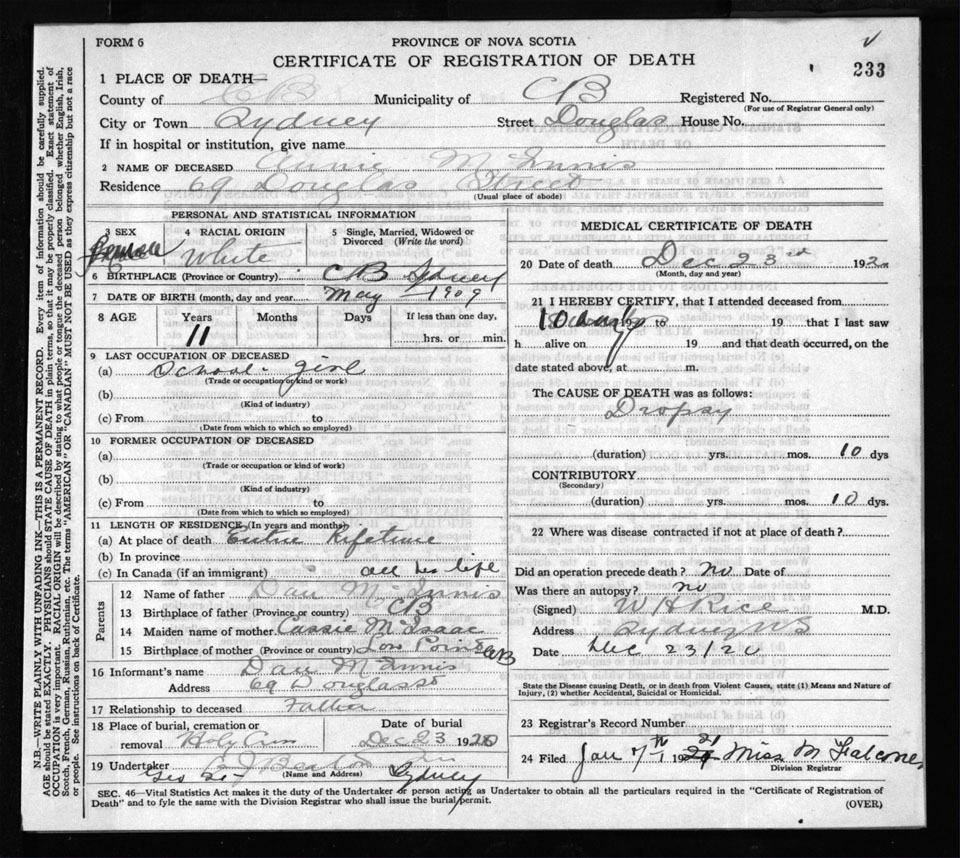 FORM 6
PROVINCE OF NOVA SCOTIA
CERTIFICATE OF REGISTRATION OF DEATH
233
1 PLACE OF DEATH—
County of CB Municipality of CB Registered No.
(For use of Registrar General only)
City or Town Sydney Street Douglas House No.
If in hospital or institution, give name
2 NAME OF DECEASED Annie McInnis
Residence 69 Douglas Street
(Usual place of abode)
PERSONAL AND STATISTICAL INFORMATION
3 SEX 4 RACIAL ORIGIN 5 Single, Married, Widowed or Divorced (Write the word)
Female White
6 BIRTHPLACE (Province or Country) CB Sydney
7 DATE OF BIRTH (month, day and year) May 1909
8 AGE Years Months Days If less than one day,
11 hrs. or min.
9 LAST OCCUPATION OF DECEASED
(a) School-girl
(Trade or occupation or kind or work)
(b)
(Kind of industry)
(c) From to
(Date from which to which so employed)
10 FORMER OCCUPATION OF DECEASED
(a)
(Trade or occupation or kind of work)
(b)
(Kind of industry)
(c) From to
(Date from which to which so employed)
11 LENGTH OF RESIDENCE (In years and months)
(a) At place of death Entire Lifetime
(b) In province
(c) In Canada (if an immigrant) all his life
Parents
12 Name of father Dan McInnis
13 Birthplace of father (Province or country) CB
14 Maiden name of mother Cassie McIsaac
15 Birthplace of mother (Province or country) Low Point CB
16 Informant's name Dan McInnis
Address 69 Douglas St
17 Relationship to deceased Father
18 Place of burial, cremation or Date of burial
removal Holy Cross Dec 23 1920
19 Undertaker Beaton
(Name and Address)
Geo St Sydney
MEDICAL CERTIFICATE OF DEATH
20 Date of death Dec 23rd 192
(Month, day and year)
21 I HEREBY CERTIFY, that I attended deceased from
10 days 19 to 19 that I last saw
h alive on 19 and that death occurred, on the
date stated above, at m.
The CAUSE OF DEATH was as follows:
Dropsy
(duration) yrs. mos. 10 dys
CONTRIBUTORY
(Secondary)
(duration) yrs. mos. 10 dys.
22 Where was disease contracted if not at place of death?
Did an operation precede death? No Date of
Was there an autopsy? no
(Signed) W H Rice M.D.
Address Sydney NS
Date Dec 23/20
State the Disease causing Death, or in death from Violent Causes, state (1) Means and Nature of
Injury, (2) whether Accidental, Suicidal or Homicidal.
23 Registrar's Record Number
24 Filed Jan 7th 1921 Miss M Falconer
Division Registrar
SEC. 46—Vital Statistics Act makes it the duty of the Undertaker or person acting as Undertaker to obtain all the particulars required in the "Certificate of Registration of
Death" and to fyle the same with the Division Registrar who shall issue the burial permit.
(OVER)
N.B.—WRITE PLAINLY WITH UNFADING INK—THIS IS A PERMANENT RECORD. Every item of information should be carefully supplied.
AGE should be stated EXACTLY. PHYSICIANS should STATE CAUSE OF DEATH in plain terms, so that it may be properly classified. Exact statement of
OCCUPATION is very important. RACIAL ORIGIN will be described by stating to what people or tongue the deceased person belonged whether English, Irish,
Scotch, French, German, Russian, Ruthenian, etc. The terms "AMERICAN" OR "CANADIAN" MUST NOT BE USED as they express citizenship but not a race
or people. See instructions on back of Certificate.